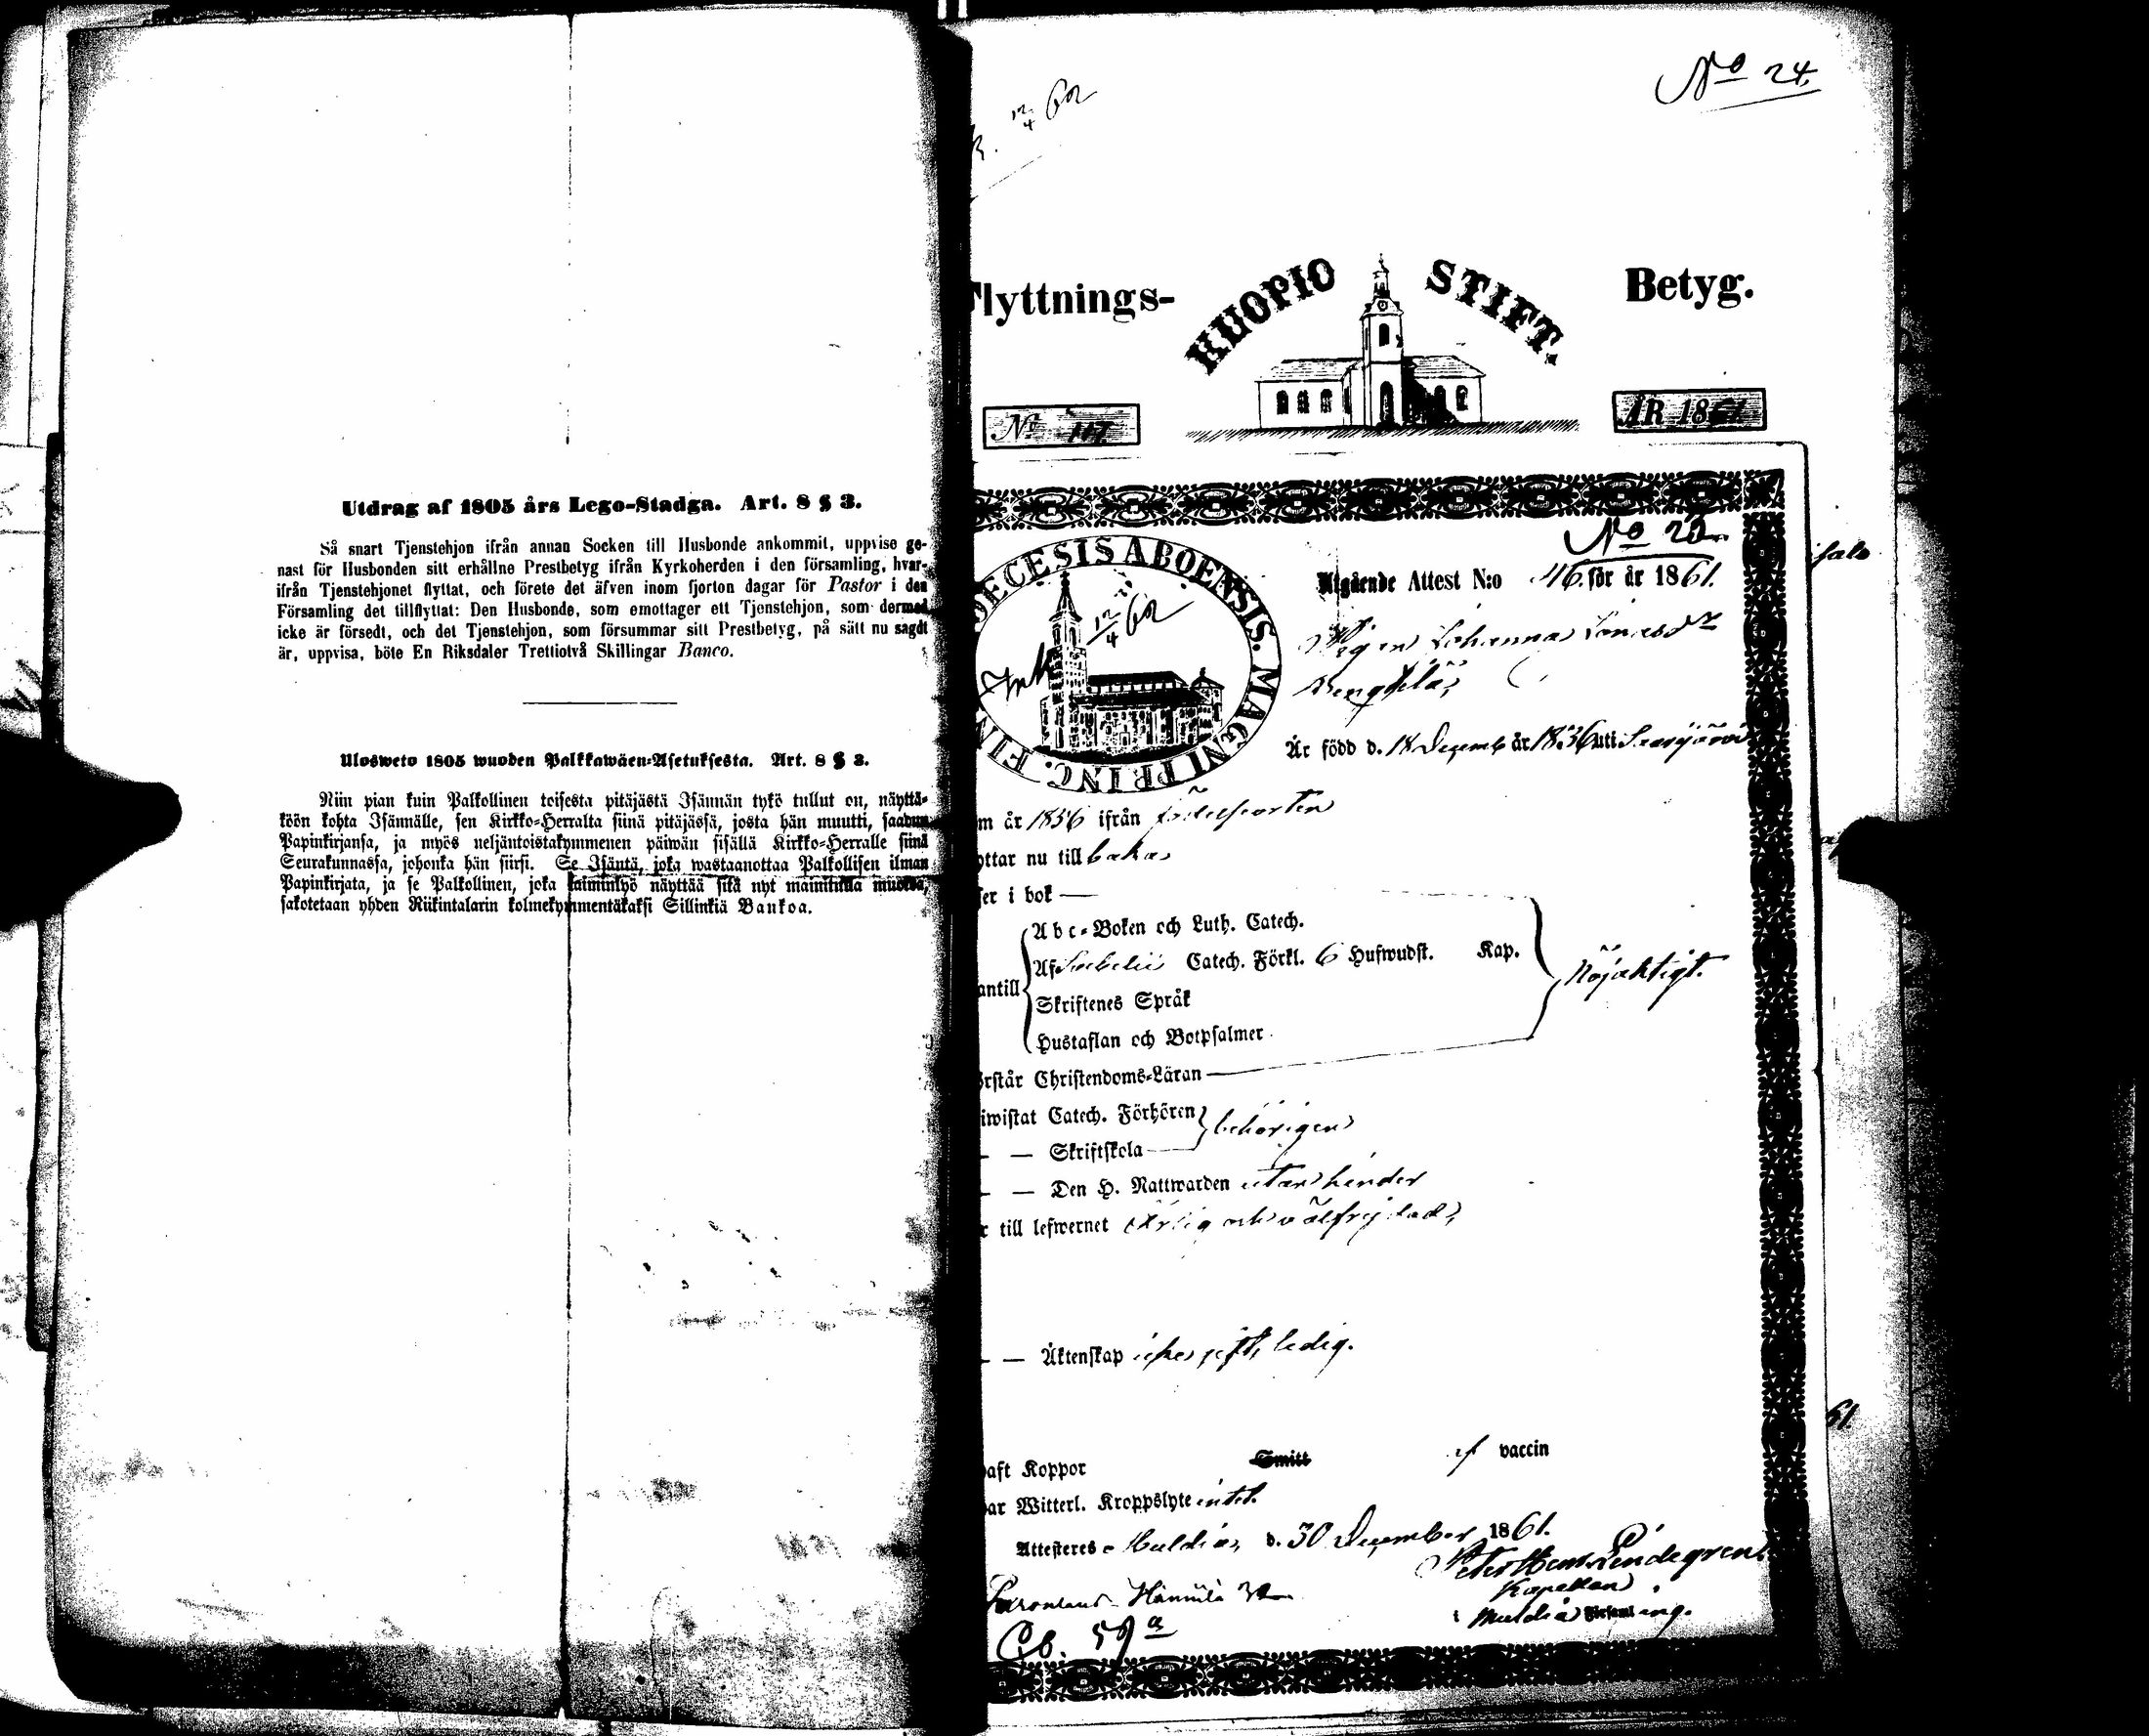 Utdrag af 1805 års Lego-Stadga. Art. 8 § 3.
Så snart Tjenstehjon ifrån annan Socken till Husbonde ankommit, uppvise ge-
nast för Husbonden sitt erhållne Prestbetyg ifrån Kyrkoherden i den församling, hvar-
ifrån Tjenstehjonet flyttat, och förete det äfven inom fjorton dagar för Pastor i den
Församling det tillflyttat: Den Husbonde, som emottager ett Tjenstehjon, som dermed
icke är försedt, och det Tjenstehjon, som försummar sitt Prestbetyg, på sätt nu sagdt
är, uppvisa, böte En Riksdaler Trettiotvå Skillingar Banco.
Ulosweto 1805 wuoden Palkkawäen-Asetuksesta. Art. 8 § 3.
Niin pian kuin Palkollinen toisesta pitäjästä Isännän tykö tullut on, näyttä-
köön kohta Isännälle, sen Kirkko-Herralta siinä pitäjässä, josta hän muutti, saadun
Papinkirjansa, ja myös neljäntoistakymmenen päiwän sisällä Kirkko-Herralle siinä
Seurakunnassa, johonka hän siirsi. Se Isäntä, joka wastaanottaa Palkollisen ilman
Papinkirjata, ja se Palkollinen, joka laiminlyö näyttää sitä nyt mainitulla muodolla,
sakotetaan yhden Riikintalarin kolmekymmentäkaksi Sillinkiä Bankoa.
No 24.
12/4 62
Flyttnings- KUOPIO STIFT. Betyg.
No 117 ÅR 1861
DIECESIS ABOENSIS. MAGNI PRINC. FIN
12/4 62
No 22
Utgående Attest N:o 46 för år 1861.
Pigan Johanna Jonasdr
Är född d. 18 Decemb år 1836 uti Saarijärvi
m år 1856 ifrån födelseorten
yttar nu tillbaka
ser i bok
Abc-Boken och Luth. Catech.
Af Svebelii Catech. Förkl. 6 Hufwudst. Kap.
antill
Skriftenes Språk
Nöjaktigt.
Hustaflan och Botpsalmer
örstår Christendoms-Läran
iwistat Catech. Förhören
behörigen
— — Skriftskola
— — Den H. Nattwarden utan hinder
r till lefwernet ärlig och välfrejdad,
— — Äktenskap icke gift, ledig.
aft Koppor Smitt af vaccin
ar Witterl. Kroppslyte intet.
Attesteres Muldia, d. 30 December 1861.
Peter Henr. Lindegren
Kapellan
i Muldia Församling.
Hännilä 32
Cb. 59 a
61.